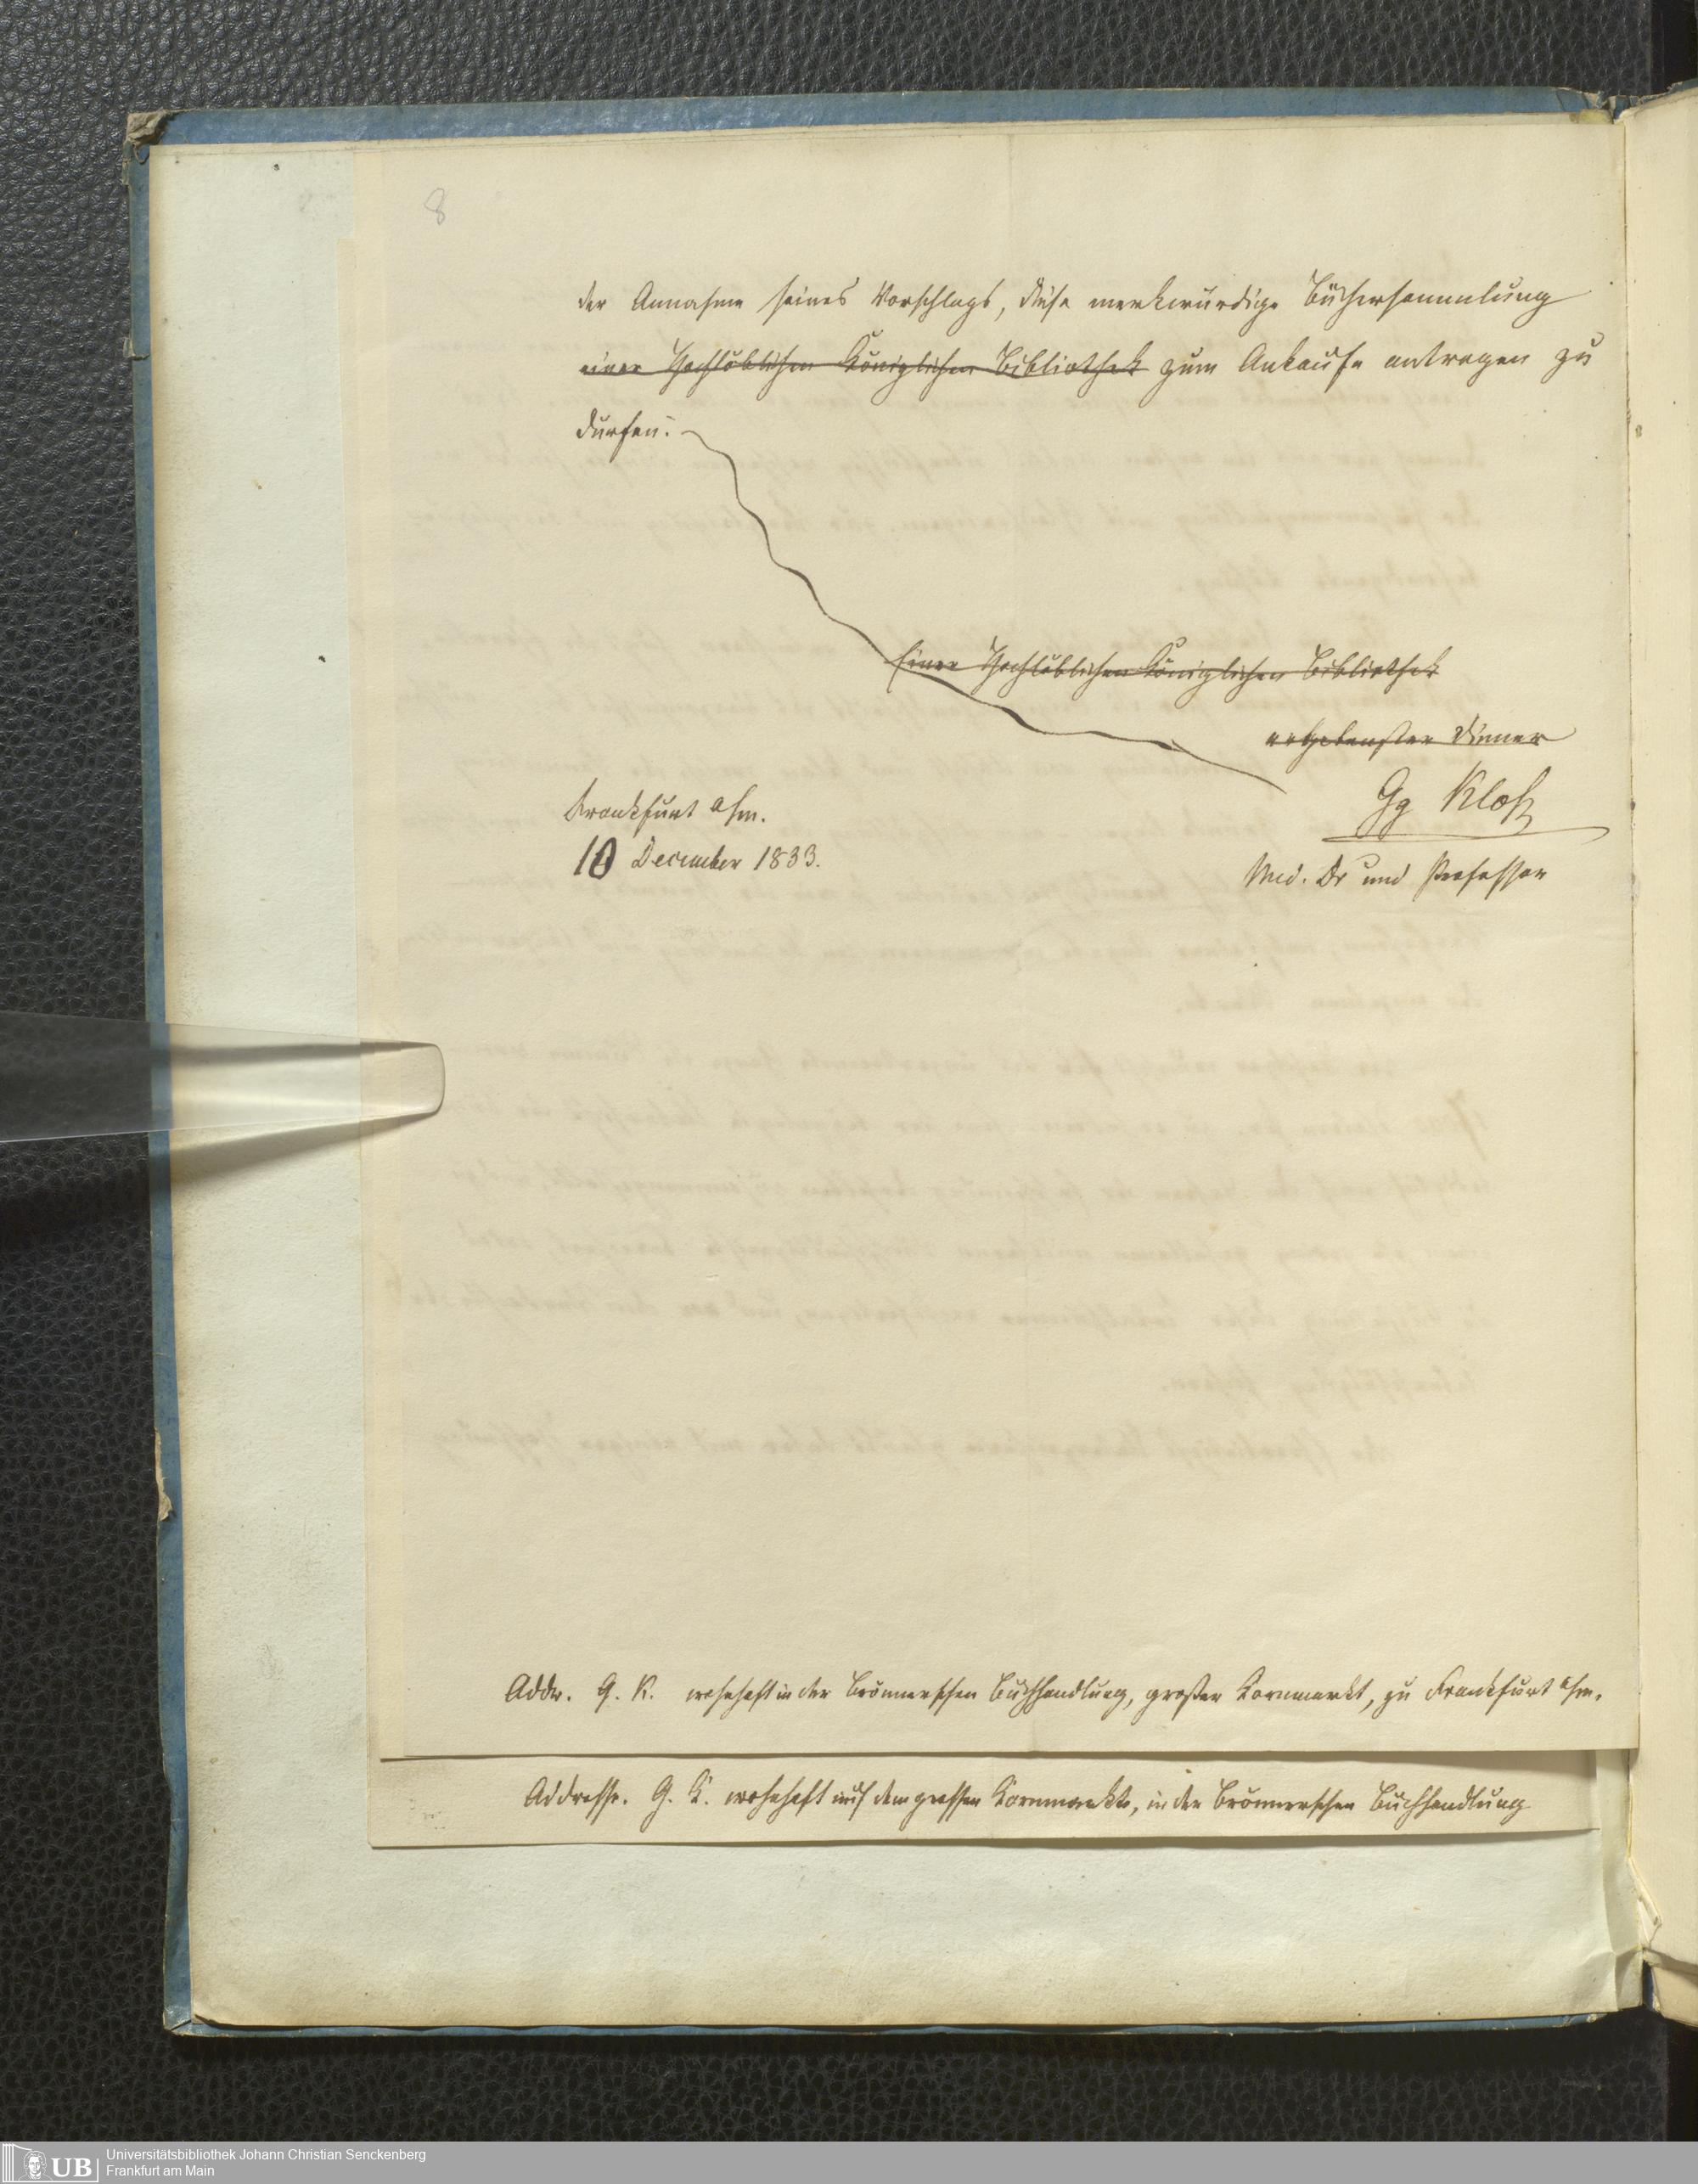 8
der Annahme seines Vorschlags, diese merkwürdige Büchersammlung
einer Hochlöblichen Königlichen Bibliothek zum Ankaufe antragen zu
dürfen.
Einer Hochlöblichen Königlichen Bibliothek
ergebenster Diener
Gg Kloß
Frankfurt a/m.
10 December 1833.
Med. Dr und Professor
Addr. G. K. wohnhaft in der Brönnerschen Buchhandlung, großer Kornmarkt, zu Frankfurt a/m.
Addresse. G. K. wohnhaft auf dem grossen Kornmarkte, in der Brönnerschen Buchhandlung
UB Universitätsbibliothek Johann Christian Senckenberg
Frankfurt am Main